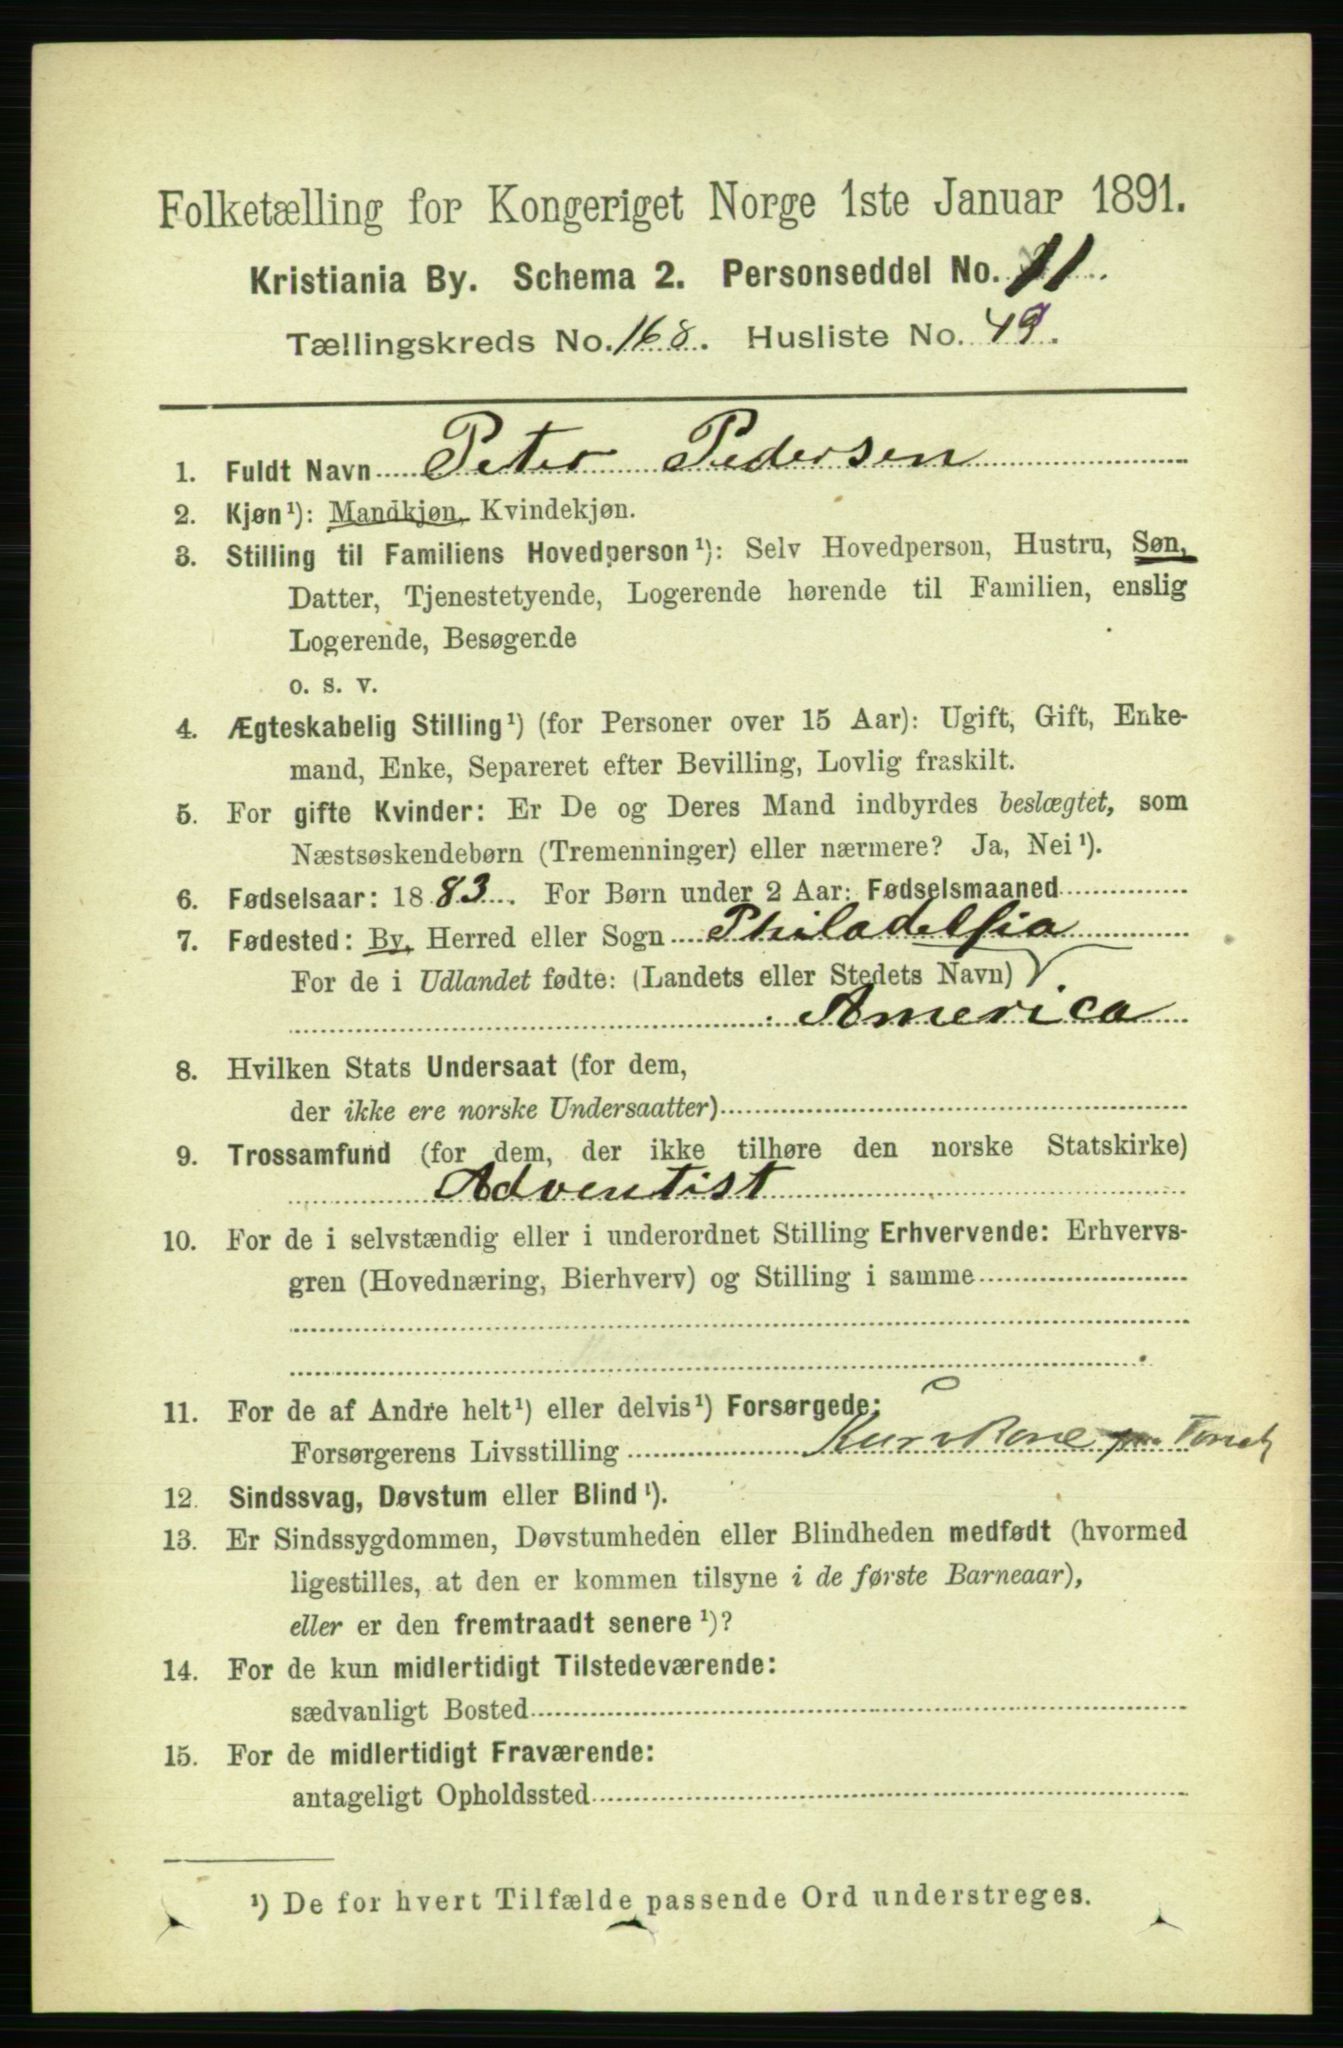 Folketælling for Kongeriget Norge 1ste Januar 1891.
Kristiania By. Schema 2. Personseddel No. 11.
Tællingskreds No. 168. Husliste No. 49.
1. Fuldt Navn Peter Pedersen
2. Kjøn¹): Mandkjøn, Kvindekjøn.
3. Stilling til Familiens Hovedperson¹): Selv Hovedperson, Hustru, Søn,
Datter, Tjenestetyende, Logerende hørende til Familien, enslig
Logerende, Besøgende
o. s. v.
4. Ægteskabelig Stilling¹) (for Personer over 15 Aar): Ugift, Gift, Enke-
mand, Enke, Separeret efter Bevilling, Lovlig fraskilt.
5. For gifte Kvinder: Er De og Deres Mand indbyrdes beslægtet, som
Næstsøskendebørn (Tremenninger) eller nærmere? Ja, Nei¹).
6. Fødselsaar: 1883. For Børn under 2 Aar: Fødselsmaaned
7. Fødested: By, Herred eller Sogn Philadelfia
For de i Udlandet fødte: (Landets eller Stedets Navn)
America
8. Hvilken Stats Undersaat (for dem,
der ikke ere norske Undersaatter)
9. Trossamfund (for dem, der ikke tilhøre den norske Statskirke)
Adventist
10. For de i selvstændig eller i underordnet Stilling Erhvervende: Erhvervs-
gren (Hovednæring, Bierhverv) og Stilling i samme
11. For de af Andre helt¹) eller delvis¹) Forsørgede:
Forsørgerens Livsstilling
12. Sindssvag, Døvstum eller Blind¹).
13. Er Sindssygdommen, Døvstumheden eller Blindheden medfødt (hvormed
ligestilles, at den er kommen tilsyne i de første Barneaar),
eller er den fremtraadt senere¹)?
14. For de kun midlertidigt Tilstedeværende:
sædvanligt Bosted
15. For de midlertidigt Fraværende:
antageligt Opholdssted
¹) De for hvert Tilfælde passende Ord understreges.